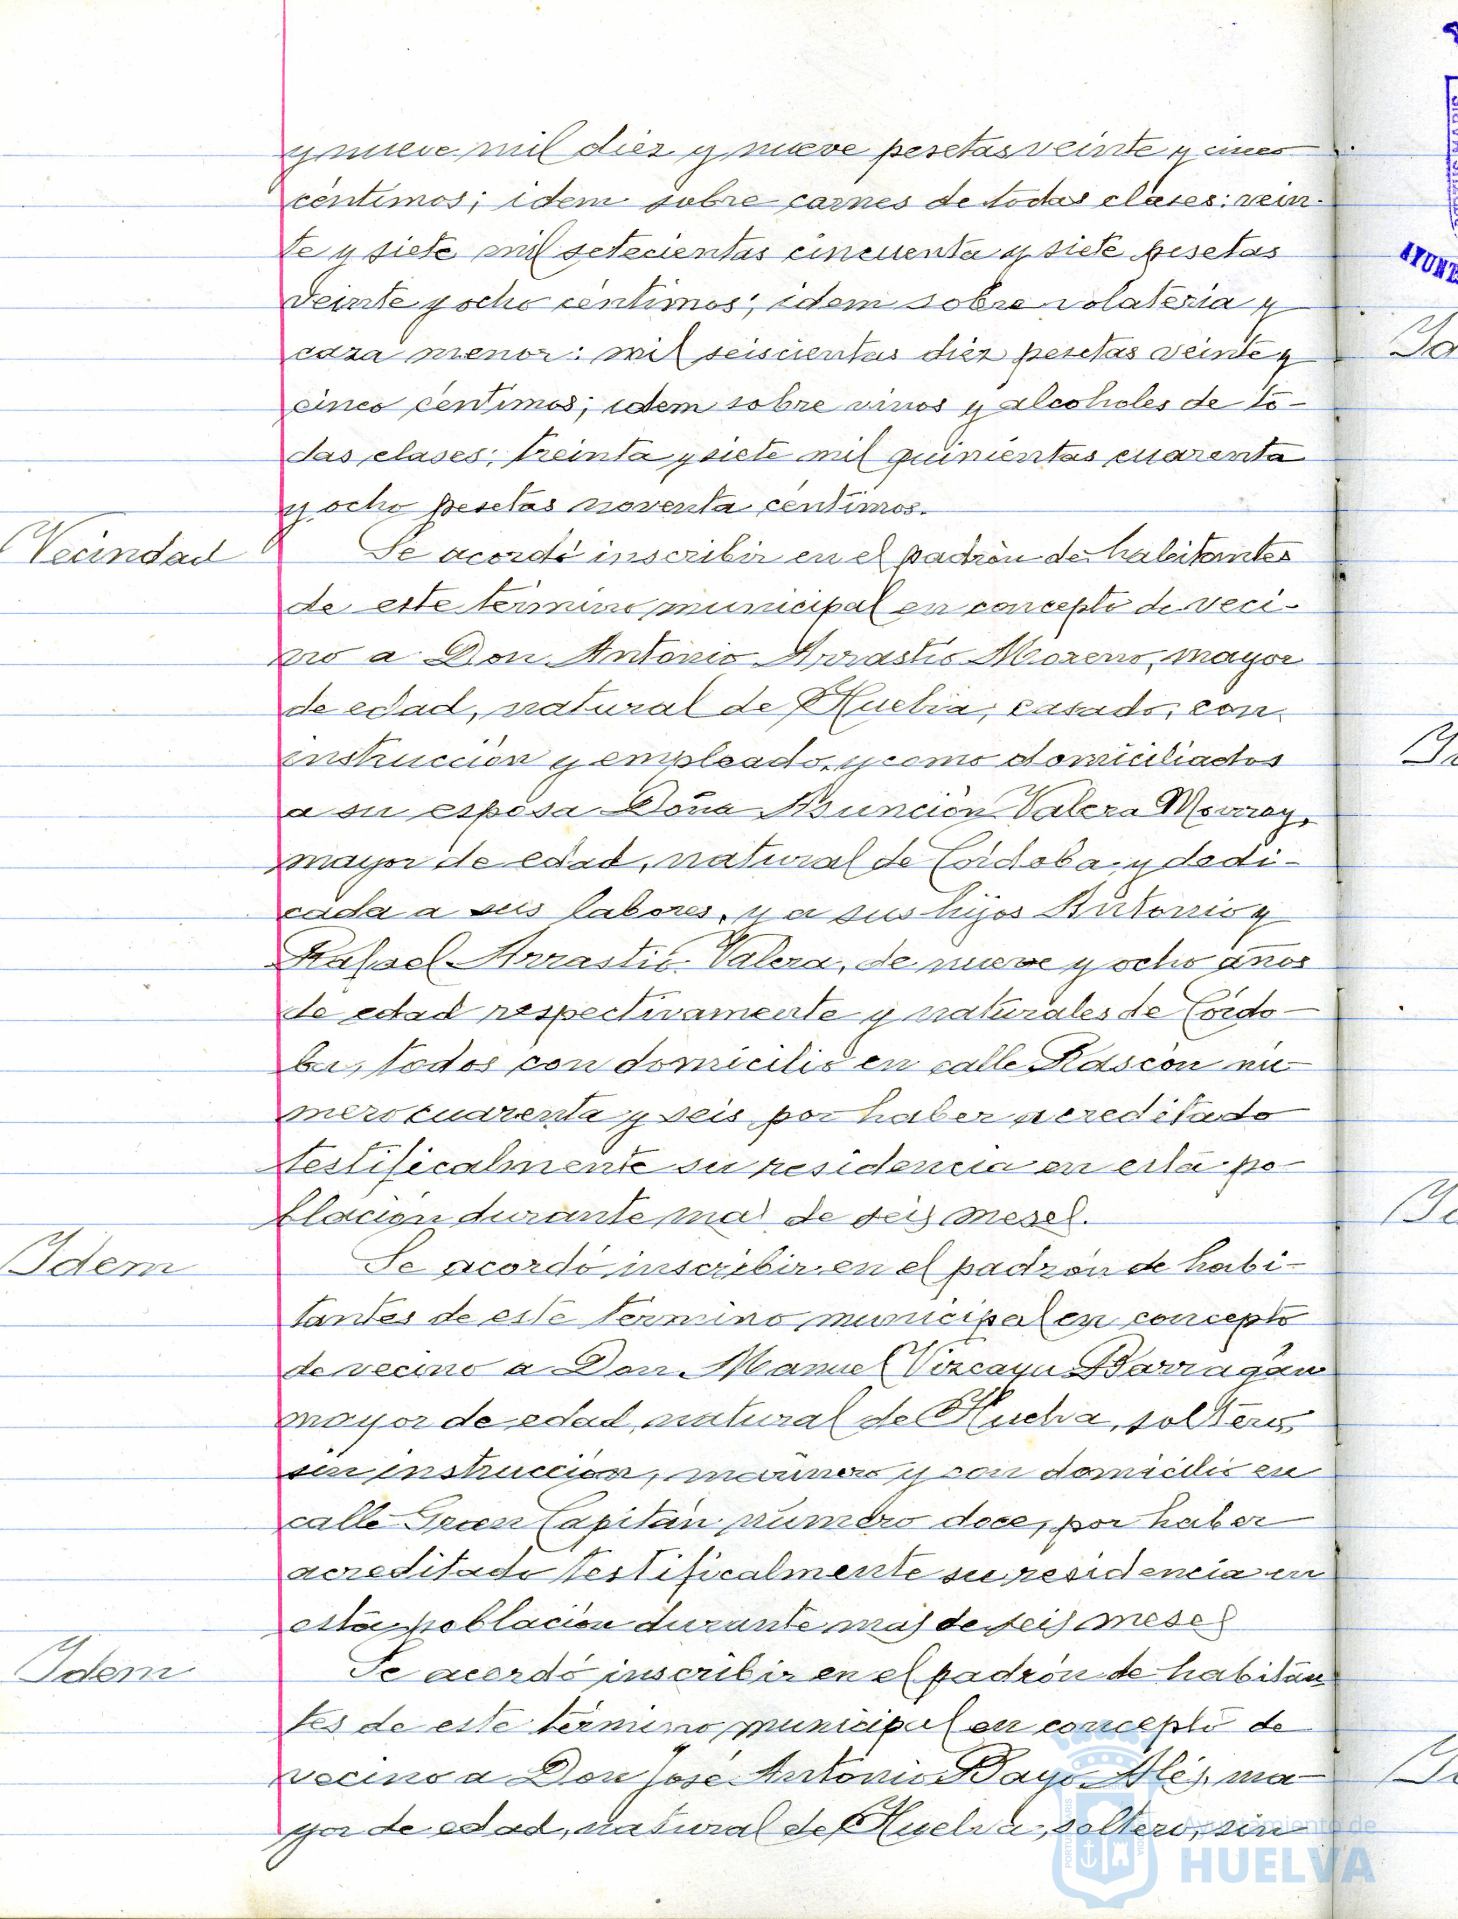 y nueve mil diez y nueve pesetas veinte y cinco
céntimos; idem sobre carnes de todas clases: vein-
te y siete mil setecientas cincuenta y siete pesetas
veinte y ocho céntimos; idem sobre volatería y
caza menor: mil seiscientas diez pesetas veinte y
cinco céntimos; idem sobre vinos y alcoholes de to-
das clases: treinta y siete mil quinientas cuarenta
y ocho pesetas noventa céntimos.
Vecindad
Se acordó inscribir en el padrón de habitantes
de este término municipal en concepto de veci-
no a Don Antonio Arrastio Moreno, mayor
de edad, natural de Huelva, casado, con
instrucción y empleado, y como domiciliados
a su esposa Doña Asunción Valera
mayor de edad, natural de Córdoba y dedi-
cada a sus labores, y a sus hijos Antonio y
Rafael Arrastio Valera, de nueve y ocho años
de edad respectivamente y naturales de Córdo-
ba, todos con domicilio en calle Rascón nú-
mero cuarenta y seis por haber acreditado
testificalmente su residencia en esta po-
blación durante mas de seis meses.
Idem
Se acordó inscribir en el padrón de habi-
tantes de este término municipal en concepto
de vecino a Don Manuel Vizcaya Barragán
mayor de edad, natural de Huelva, soltero,
sin instrucción, marinero y con domicilio en
calle Gran Capitán número doce, por haber
acreditado testificalmente su residencia en
esta población durante mas de seis meses
Idem
Se acordó inscribir en el padrón de habitan
tes de este término municipal en concepto de
vecino a Don José Antonio Bayo Alés, ma-
yor de edad, natural de Huelva, soltero, sin
Ayuntamiento de
HUELVA